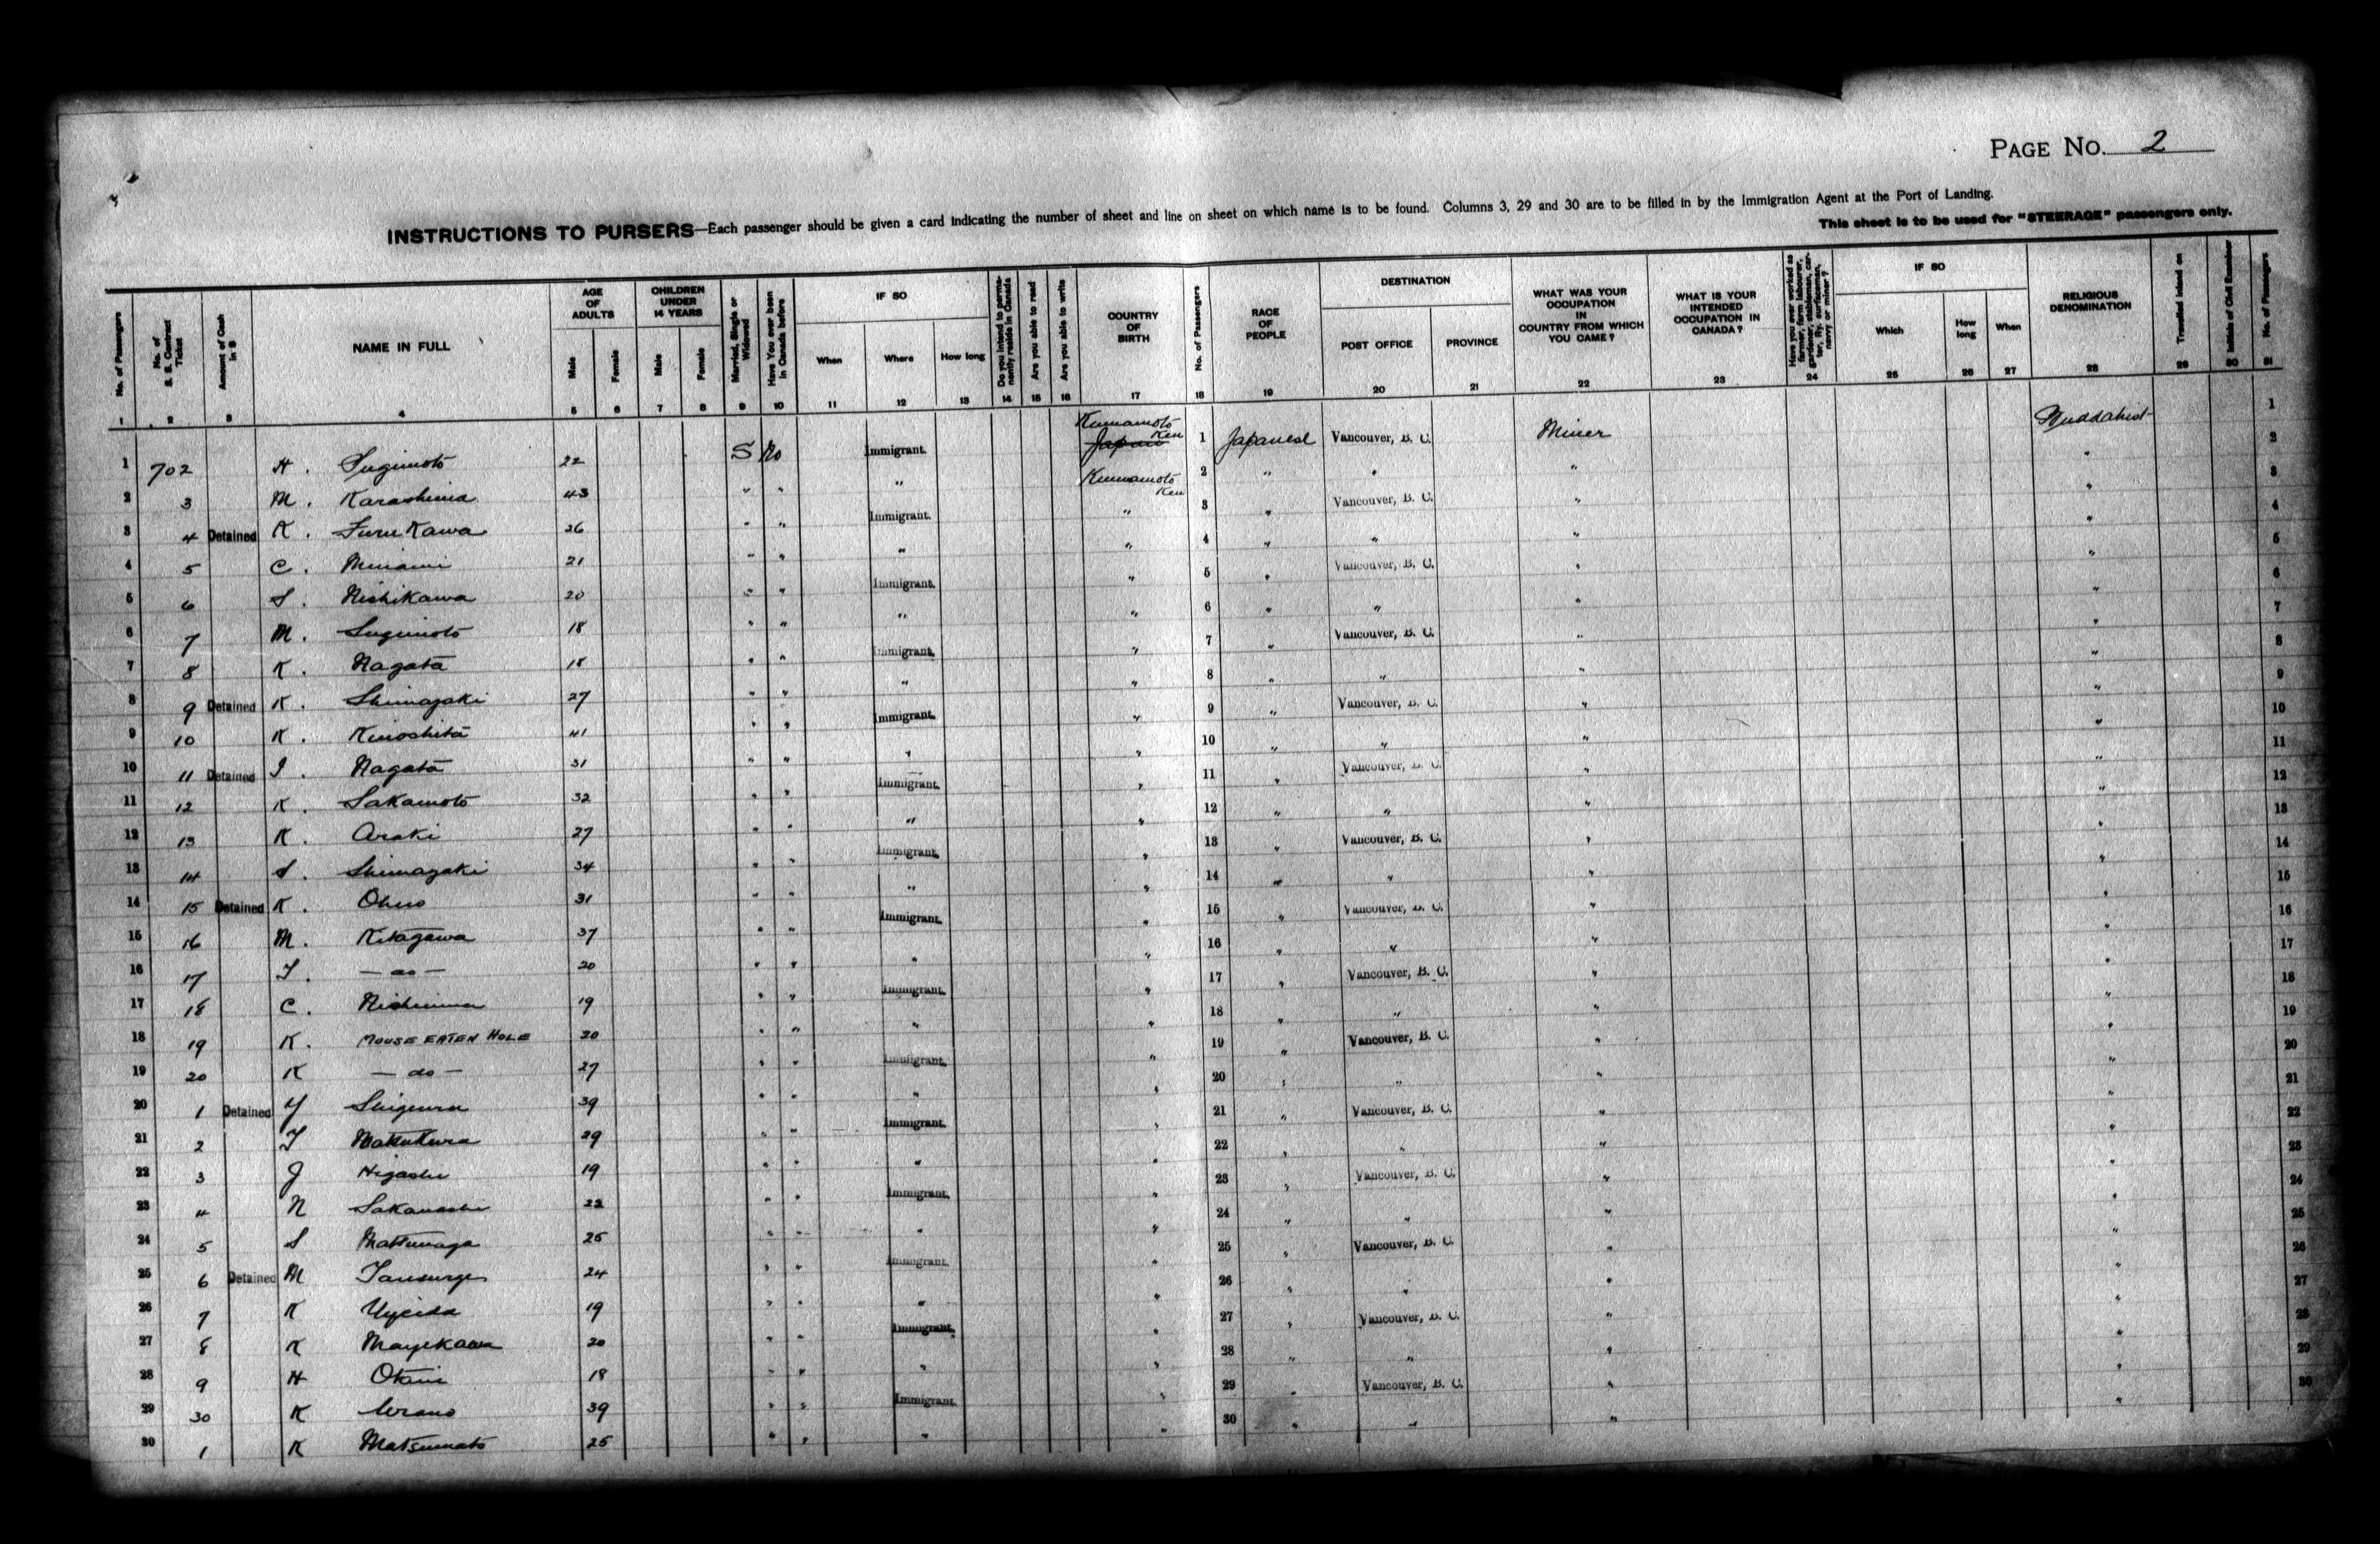 PAGE NO. 2
INSTRUCTIONS TO PURSERS—Each passenger should be given a card indicating the number of sheet and line on sheet on which name is to be found. Columns 3, 29 and 30 are to be filled in by the Immigration Agent at the Port of Landing.
This sheet is to be used for "STEERAGE" passengers only.
No. of Passengers 1
No. of S. S. Contract Ticket 2
Amount of Cash in $ 3
NAME IN FULL 4
AGE OF ADULTS Male 5 Female 6
CHILDREN UNDER 14 YEARS Male 7 Female 8
Married, Single or Widowed 9
Have You ever been in Canada before 10
IF SO When 11 Where 12 How long 13
Do you intend to permanently reside in Canada 14
Are you able to read 15
Are you able to write 16
COUNTRY OF BIRTH 17
No. of Passengers 18
RACE OF PEOPLE 19
DESTINATION POST OFFICE 20 PROVINCE 21
WHAT WAS YOUR OCCUPATION IN COUNTRY FROM WHICH YOU CAME? 22
WHAT IS YOUR INTENDED OCCUPATION IN CANADA? 23
Have you ever worked as farmer, farm labourer, gardener, stableman, carter, Ry. surfaceman, navvy or miner? 24
IF SO Which 25 How long 26 When 27
RELIGIOUS DENOMINATION 28
Travelled Inland on 29
Initials of Civil Examiner 30
No. of Passengers 31
1 702 H. Sugimoto 22 S No Immigrant. Kumamoto Ken Japan 1 Japanese Vancouver, B. C. Miner Buddahist 1
2 3 M. Karashima 43 " " " Kumamoto Ken 2 " " " " 2
3 4 Detained K. Furukawa 26 " " Immigrant. " 3 " Vancouver, B. C. " " 3
4 5 C. Minami 21 " " " " 4 " " " " 4
5 6 S. Nishikawa 20 " " Immigrant. " 5 " Vancouver, B. C. " " 5
6 7 M. Sugimoto 18 " " " " 6 " " " " 6
7 8 K. Nagata 18 " " Immigrant. " 7 " Vancouver, B. C. " " 7
8 9 Detained K. Shimazaki 27 " " " " 8 " " " " 8
9 10 K. Kinoshita 41 " " Immigrant. " 9 " Vancouver, B. C. " " 9
10 11 Detained I. Nagata 31 " " " " 10 " " " " 10
11 12 K. Sakamoto 32 " " Immigrant. " 11 " Vancouver, B. C. " " 11
12 13 K. Araki 27 " " " " 12 " " " " 12
13 14 S. Shimazaki 34 " " Immigrant. " 13 " Vancouver, B. C. " " 13
14 15 Detained K. Ohno 31 " " " " 14 " " " " 14
15 16 M. Kitagawa 37 " " Immigrant. " 15 " Vancouver, B. C. " " 15
16 17 T. — do — 20 " " " " 16 " " " " 16
17 18 C. 19 " " Immigrant. " 17 " Vancouver, B. C. " " 17
18 19 K. MOUSE EATEN HOLE 30 " " " " 18 " " " " 18
19 20 K — do — 27 " " Immigrant. " 19 " Vancouver, B. C. " " 19
20 1 Detained Y 39 " " " " 20 " " " " 20
21 2 T 29 " " Immigrant. " 21 " Vancouver, B. C. " " 21
22 3 J Higashi 19 " " " " 22 " " " " 22
23 4 N Sakanashi 22 " " Immigrant. " 23 " Vancouver, B. C. " " 23
24 5 S Matsunaga 25 " " " " 24 " " " " 24
25 6 Detained M 24 " " Immigrant. " 25 " Vancouver, B. C. " " 25
26 7 K Uyeda 19 " " " " 26 " " " " 26
27 8 K Mayekawa 20 " " Immigrant. " 27 " Vancouver, B. C. " " 27
28 9 H Otani 18 " " " " 28 " " " " 28
29 30 K 39 " " Immigrant. " 29 " Vancouver, B. C. " " 29
30 1 K Matsumoto 25 " " " " 30 " " " " 30